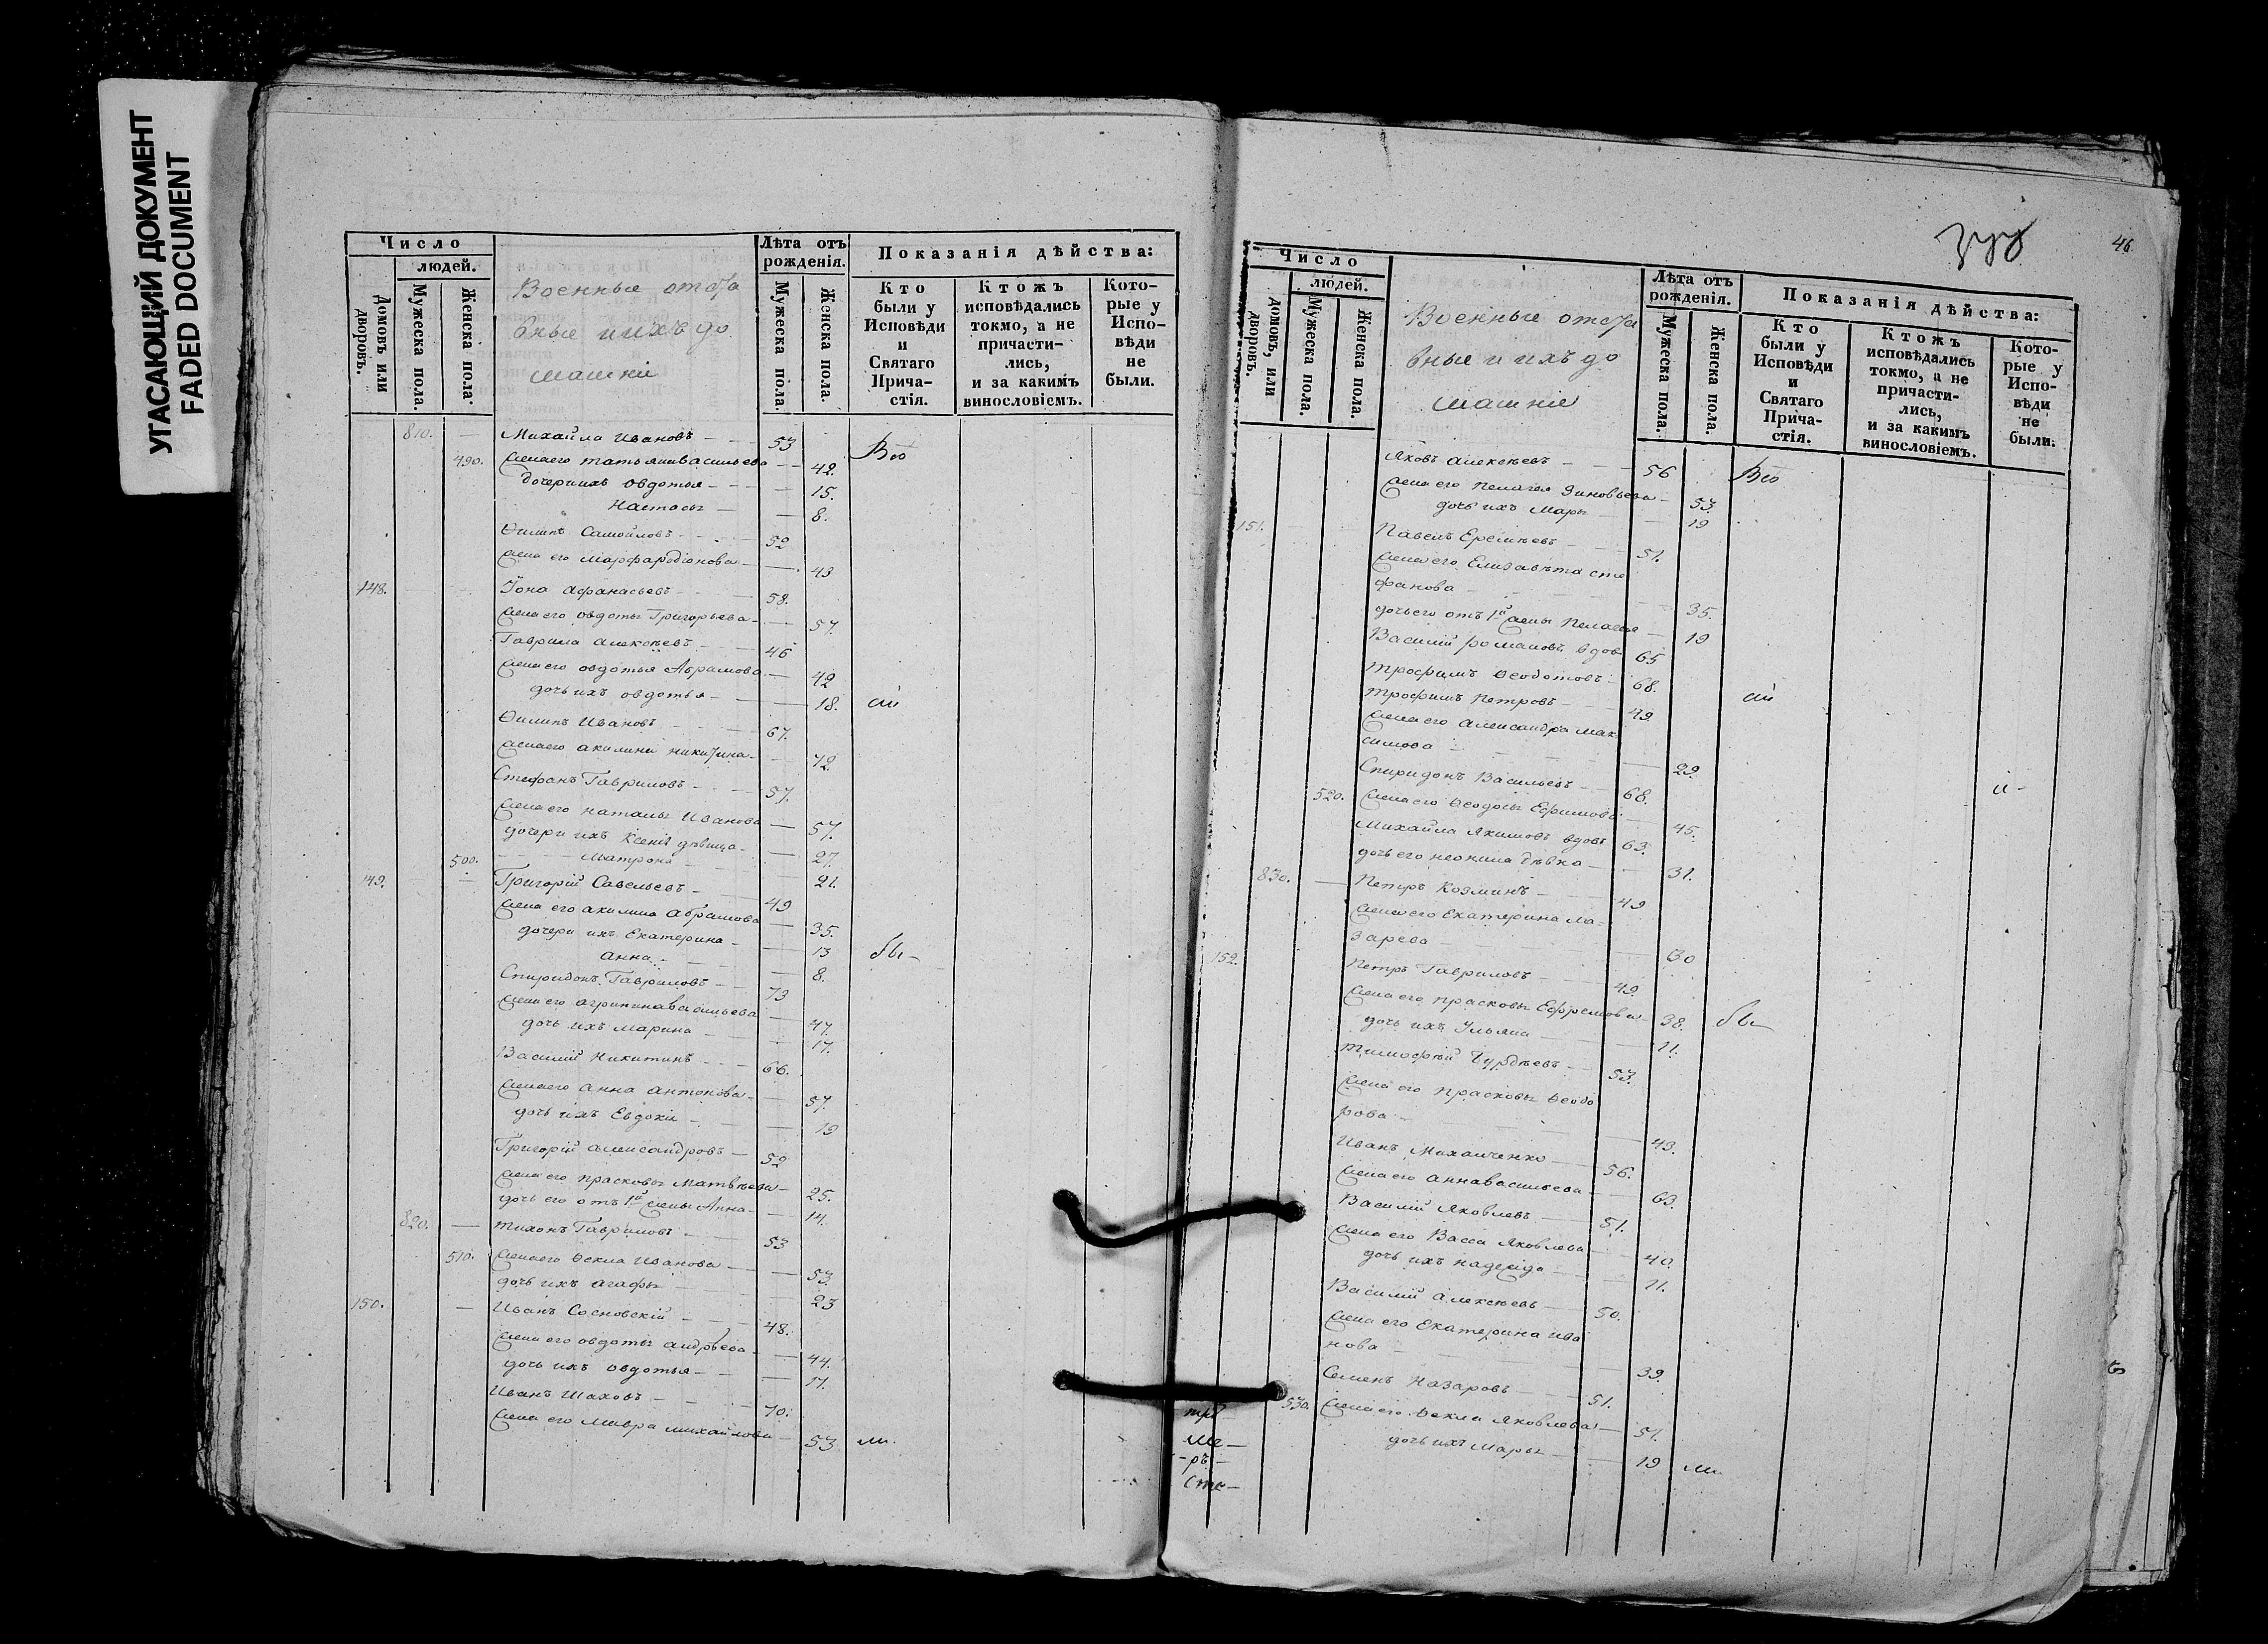 УГАСАЮЩИЙ ДОКУМЕНТ
FADED DOCUMENT
Число
людей.
Домовъ или дворовъ.
Мужеска пола.
Женска пола.
Военные отста
вные и ихъ до
машніи
Лѣта отъ рожденія.
Мужеска пола.
Женска пола.
Показанія дѣйства:
Кто были у Исповѣди и Святаго Прича- стія.
Ктожъ исповѣдались токмо, а не причасти- лись, и за какимъ винословіемъ.
Кото- рые у Испо- вѣди не были.
810. — Михайла Ивановъ — 53
490. Жена его Татьяна Васильева — 42.
дочери ихъ Овдотья — 15.
Настасья — 8.
Ѳилипъ Самойловъ — 52
Жена его Марфа Родіонова — 43
148. Іона Афанасьевъ — 58.
Жена его Овдотья Григорьева — 57.
Гаврила Алексѣевъ — 46
Жена его Овдотья Абрамова — 42
дочь ихъ Овдотья — 18.
Ѳилипъ Ивановъ — 67.
Жена его Акилина Никитина — 72.
Стефанъ Гавриловъ — 57.
Жена его Наталья Иванова — 57.
дочери ихъ Ксенія дѣвица — 27.
500. Матрона — 21.
149. — Григорій Савельевъ — 49
Жена его Акилина Абрамова — 35.
дочери ихъ Екатерина — 13
Анна — 8.
бы-
Спиридонъ Гавриловъ — 73
Жена его Агрипина Васильева — 47.
дочь ихъ Марина — 17.
Василій Никитинъ — 66.
Жена его Анна Антонова — 57.
дочь ихъ Евдокія — 19
Григорій Александровъ — 52
Жена его Прасковья Матвѣева — 25.
дочь его отъ 1й жены Анна — 14.
820. — Тихонъ Гавриловъ — 53
510. Жена его Ѳекла Иванова — 53.
дочь ихъ Агафья — 23
150. — Иванъ Сосновскій — 48.
Жена его Овдотья Андрѣева — 44.
дочь ихъ Овдотья — 17.
Иванъ Шаховъ — 70.
Жена его Мавра Михайлова — 53 ли.
46.
Число
людей.
домовъ, или дворовъ.
Мужеска пола.
Женска пола.
Военные отста
вные и ихъ до
машніе
Лѣта отъ рожденія.
Мужеска пола.
Женска пола.
Показанія дѣйства:
Кто были у Исповѣди и Святаго Прича- стія.
Ктожъ исповѣдались токмо, а не причасти- лись, и за какимъ винословіемъ.
Кото- рые у Испо- вѣди не были.
Яковъ Алексѣевъ — 56
Жена его Пелагея Зиновьева — 53.
дочь ихъ Марья — 19
151. Павелъ Еремѣевъ — 51.
Жена его Елизавѣта Сте
фанова — 35.
дочь его отъ 1й жены Пелагея — 19
Василій Романовъ вдовъ 65
Трофимъ Ѳеодотовъ — 68.
Трофимъ Петровъ — 49.
Жена его Александра Мак
симова — 29.
Спиридонъ Васильевъ — 68.
520. Жена его Ѳеодосья Ефимова — 45.
Михайла Якимовъ вдовъ 63.
дочь его Неонила дѣвка — 31.
830. — Петръ Козминъ — 49
Жена его Екатерина Ла-
зарева — 30
152. Петръ Гавриловъ — 49.
Жена его Прасковья Ефремова — 38. бы-
дочь ихъ Ульяна — 11.
Тимофѣй — 53.
Жена его Прасковья Ѳеодо
рова — 43.
Иванъ Михалченко — 56.
Жена его Анна Васильева — 63.
Василій Яковлевъ — 51.
Жена его Васса Яковлева — 40.
дочь ихъ Надежда — 11.
Василій Алексѣевъ — 50.
Жена его Екатерина Ива
нова — 39.
Семенъ Назаровъ — 51.
530. Жена его Ѳекла Яковлева — 51.
дочь ихъ Марья — 19 ли.